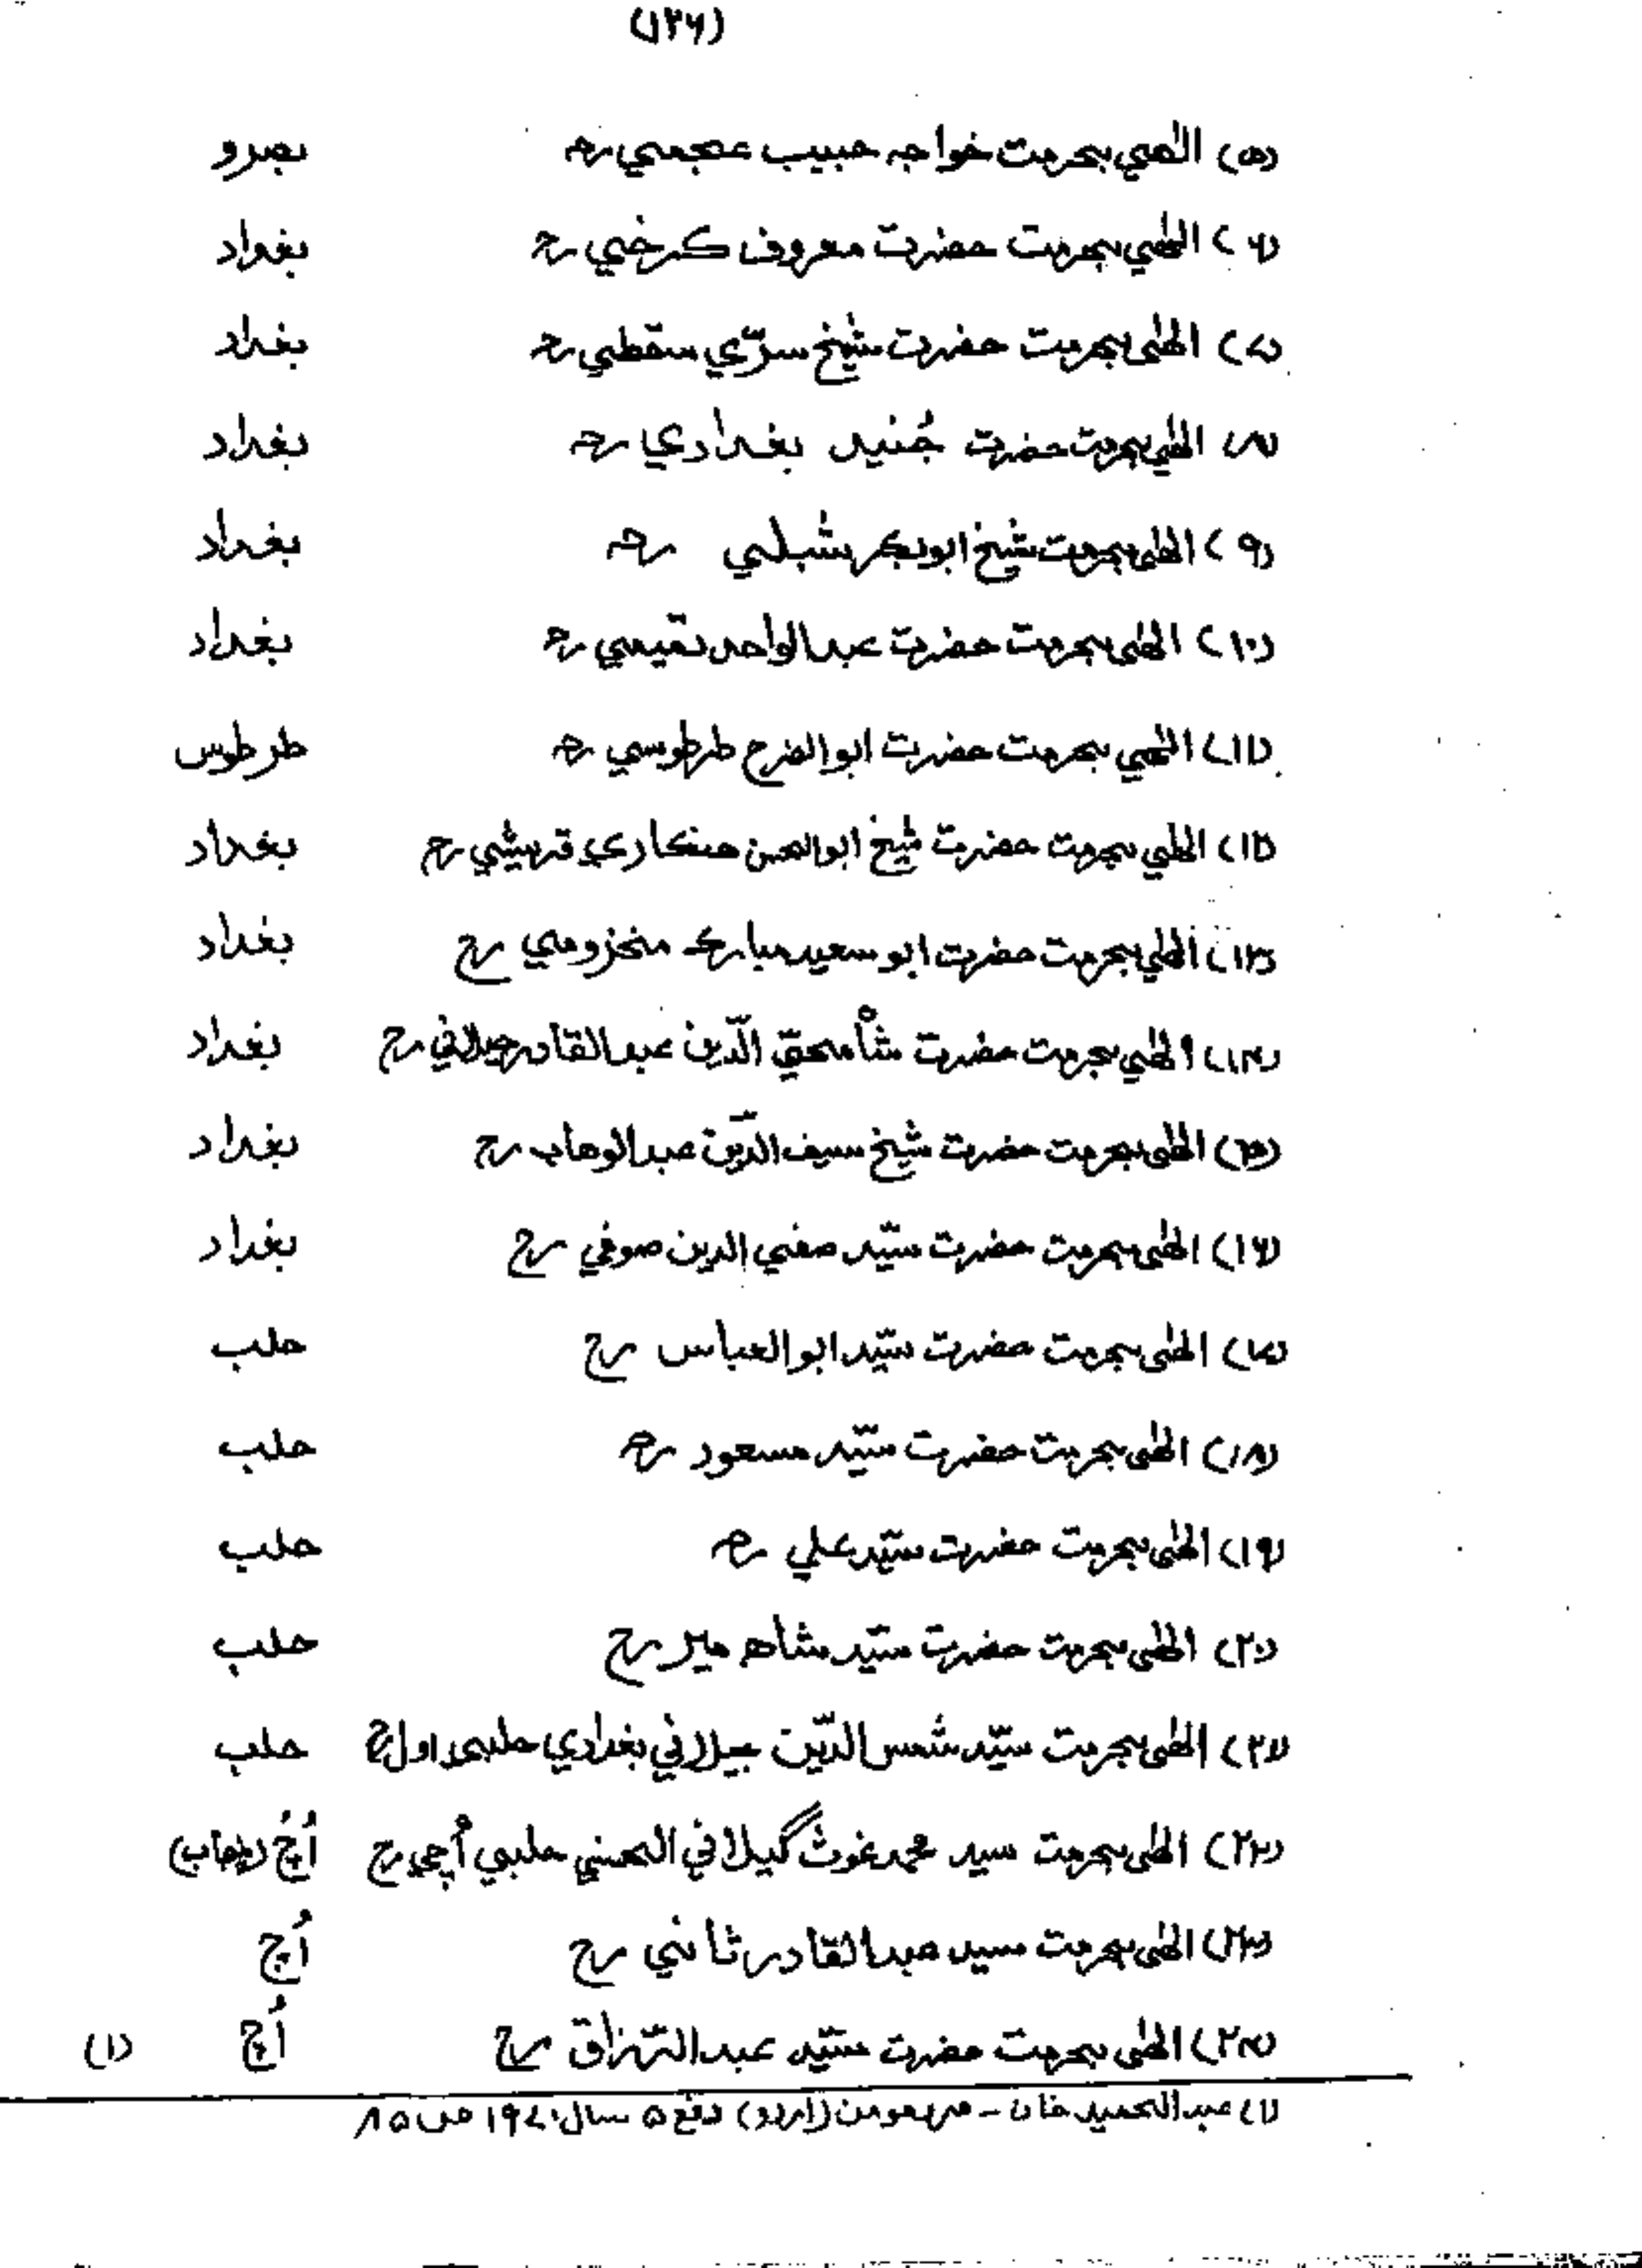 (۱۲۶)
(۵) الٰهي بحرمت خواجہ حبيب عجمي رح بصرو
(۶) الٰهي بحرمت حضرت معروف كرخي رح بغداد
(۷) الٰهي بحرمت حضرت شيخ سرّي سقطي رح بغداد
(۸) الٰهي بحرمت حضرت جُنيد بغدادي رح بغداد
(۹) الٰهي بحرمت شيخ ابوبكر شبلي رح بغداد
(۱۰) الٰهي بحرمت حضرت عبدالواحد تميمي رح بغداد
(۱۱) الٰهي بحرمت حضرت ابوالفرح طرطوسي رح طرطوس
(۱۲) الٰهي بحرمت حضرت شيخ ابوالحسن هنكاري قريشي رح بغداد
(۱۳) الٰهي بحرمت حضرت ابو سعيد مبارك مخزومي رح بغداد
(۱۴) الٰهي بحرمت حضرت شاہ محي الدّين عبدالقادر جيلاني رح بغداد
(۱۵) الٰهي بحرمت حضرت شيخ سيف الدّين عبدالوهاب رح بغداد
(۱۶) الٰهي بحرمت حضرت سيّد صفي الدين صوفي رح بغداد
(۱۷) الٰهي بحرمت حضرت سيّد ابوالعباس رح حلب
(۱۸) الٰهي بحرمت حضرت سيّد مسعود رح حلب
(۱۹) الٰهي بحرمت حضرت سيّد علي رح حلب
(۲۰) الٰهي بحرمت حضرت سيّد شاهہ مير رح حلب
(۲۱) الٰهي بحرمت سيّد شمس الدّين جيلاني بغدادي حلبي اول رح حلب
(۲۲) الٰهي بحرمت سيد محمد غوث گيلاني الحسني حلبي اُچي رح اُچ (پنجاب)
(۲۳) الٰهي بحرمت سيد عبدالقادر ثاني رح اُچ
(۲۴) الٰهي بحرمت حضرت سيّد عبدالرّزاق رح اُچ (۱)
(۱) عبدالحميد خان - مرد مومن (اردو) دفع ۵ سال ۱۹۷۰ ص ۸۵